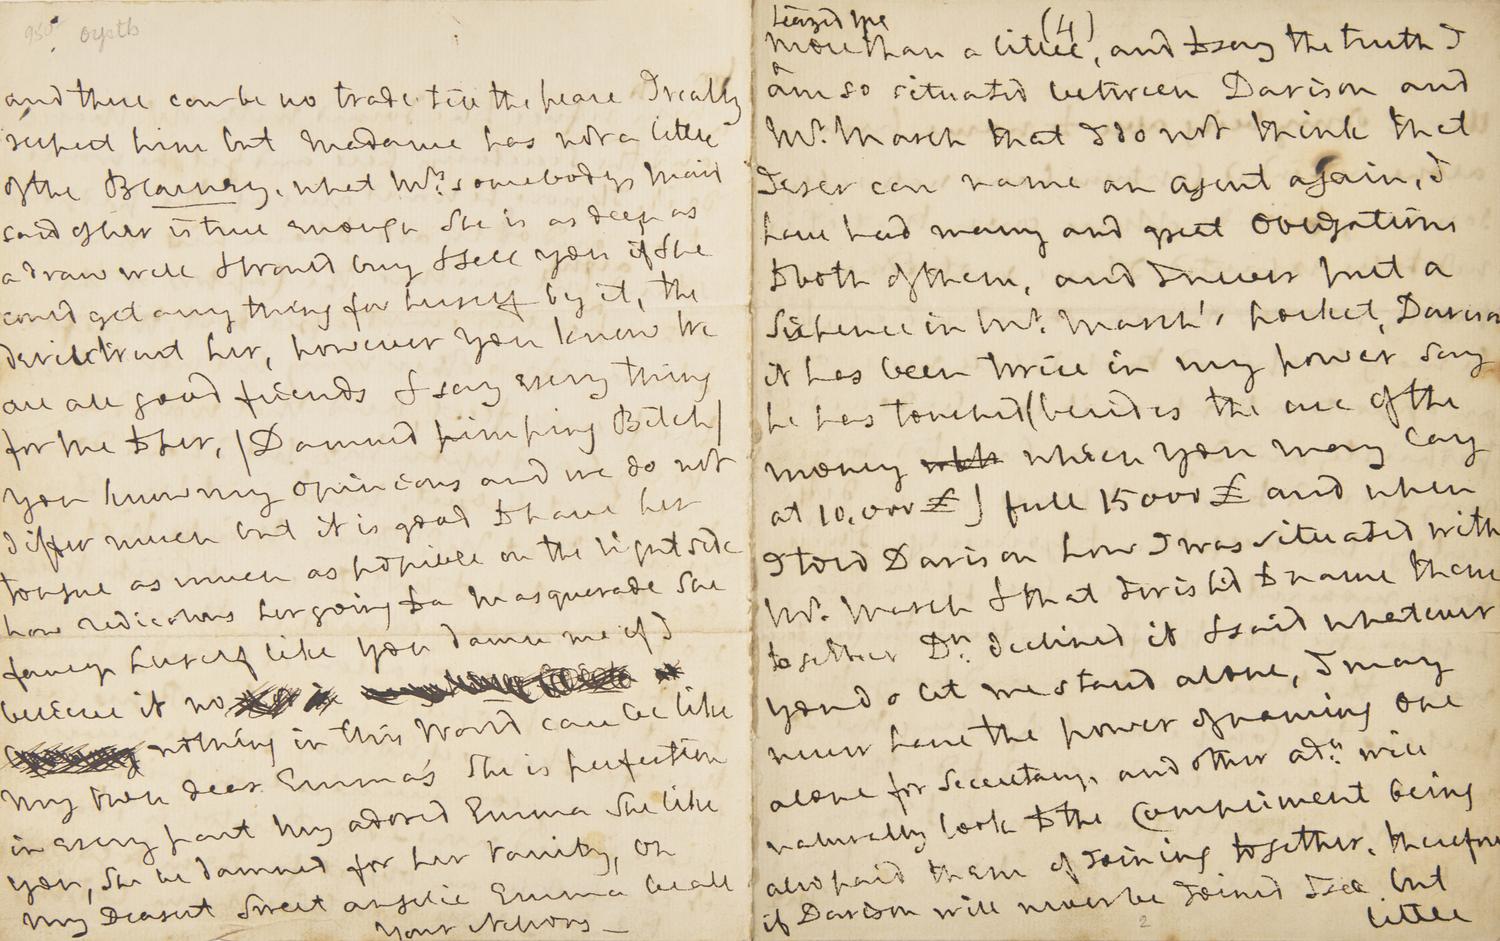 and there can be no trade till the peace I really
respect him but Madame has not a little
of the Blarney, what Mrs. somebodys Maid
said of her is true enough She is as deep as
a draw well & would buy & sell you if She
could get any thing for herself by it, the
devil trust her, however you know We
are all good friends & say every thing
for me to her, (Damned pimping Bitch)
you know my opinions and we do not
differ much but it is good to have her
tongue as much as possible on the right side
how rediculous her going to a Masquerade She
fancys herself like you damn me if I
believe it no
nothing in this World can be like
My own dear Emma's She is perfection
in every part my adored Emma She like
you, She be damned for her vanity, Oh
My Dearest Sweet angelic Emma be all
Your Nelsons
(4)
teazed me
more than a little, and to say the truth I
am so situated between Davison and
Mr. Marsh that I do not think that
I ever can name an agent again, I
have had many and great obligations
to both of them, and I never put a
Sixpence in Mr. Marsh's pocket, Davison
it has been twice in my power say
he has touched (besides the use of the
money which you may say
at 10,000 £) full 15000 £ and when
I told Davison how I was situated with
Mr. Marsh & that I wish'd to name them
together Dn. declined it & said whatever
you do let me stand alone, I may
never have the power of naming one
alone for Secretarys and other adn. will
naturally look to the Compliment being
also paid them of joining together, therefore
if Davison will never be joined I see but
little
2